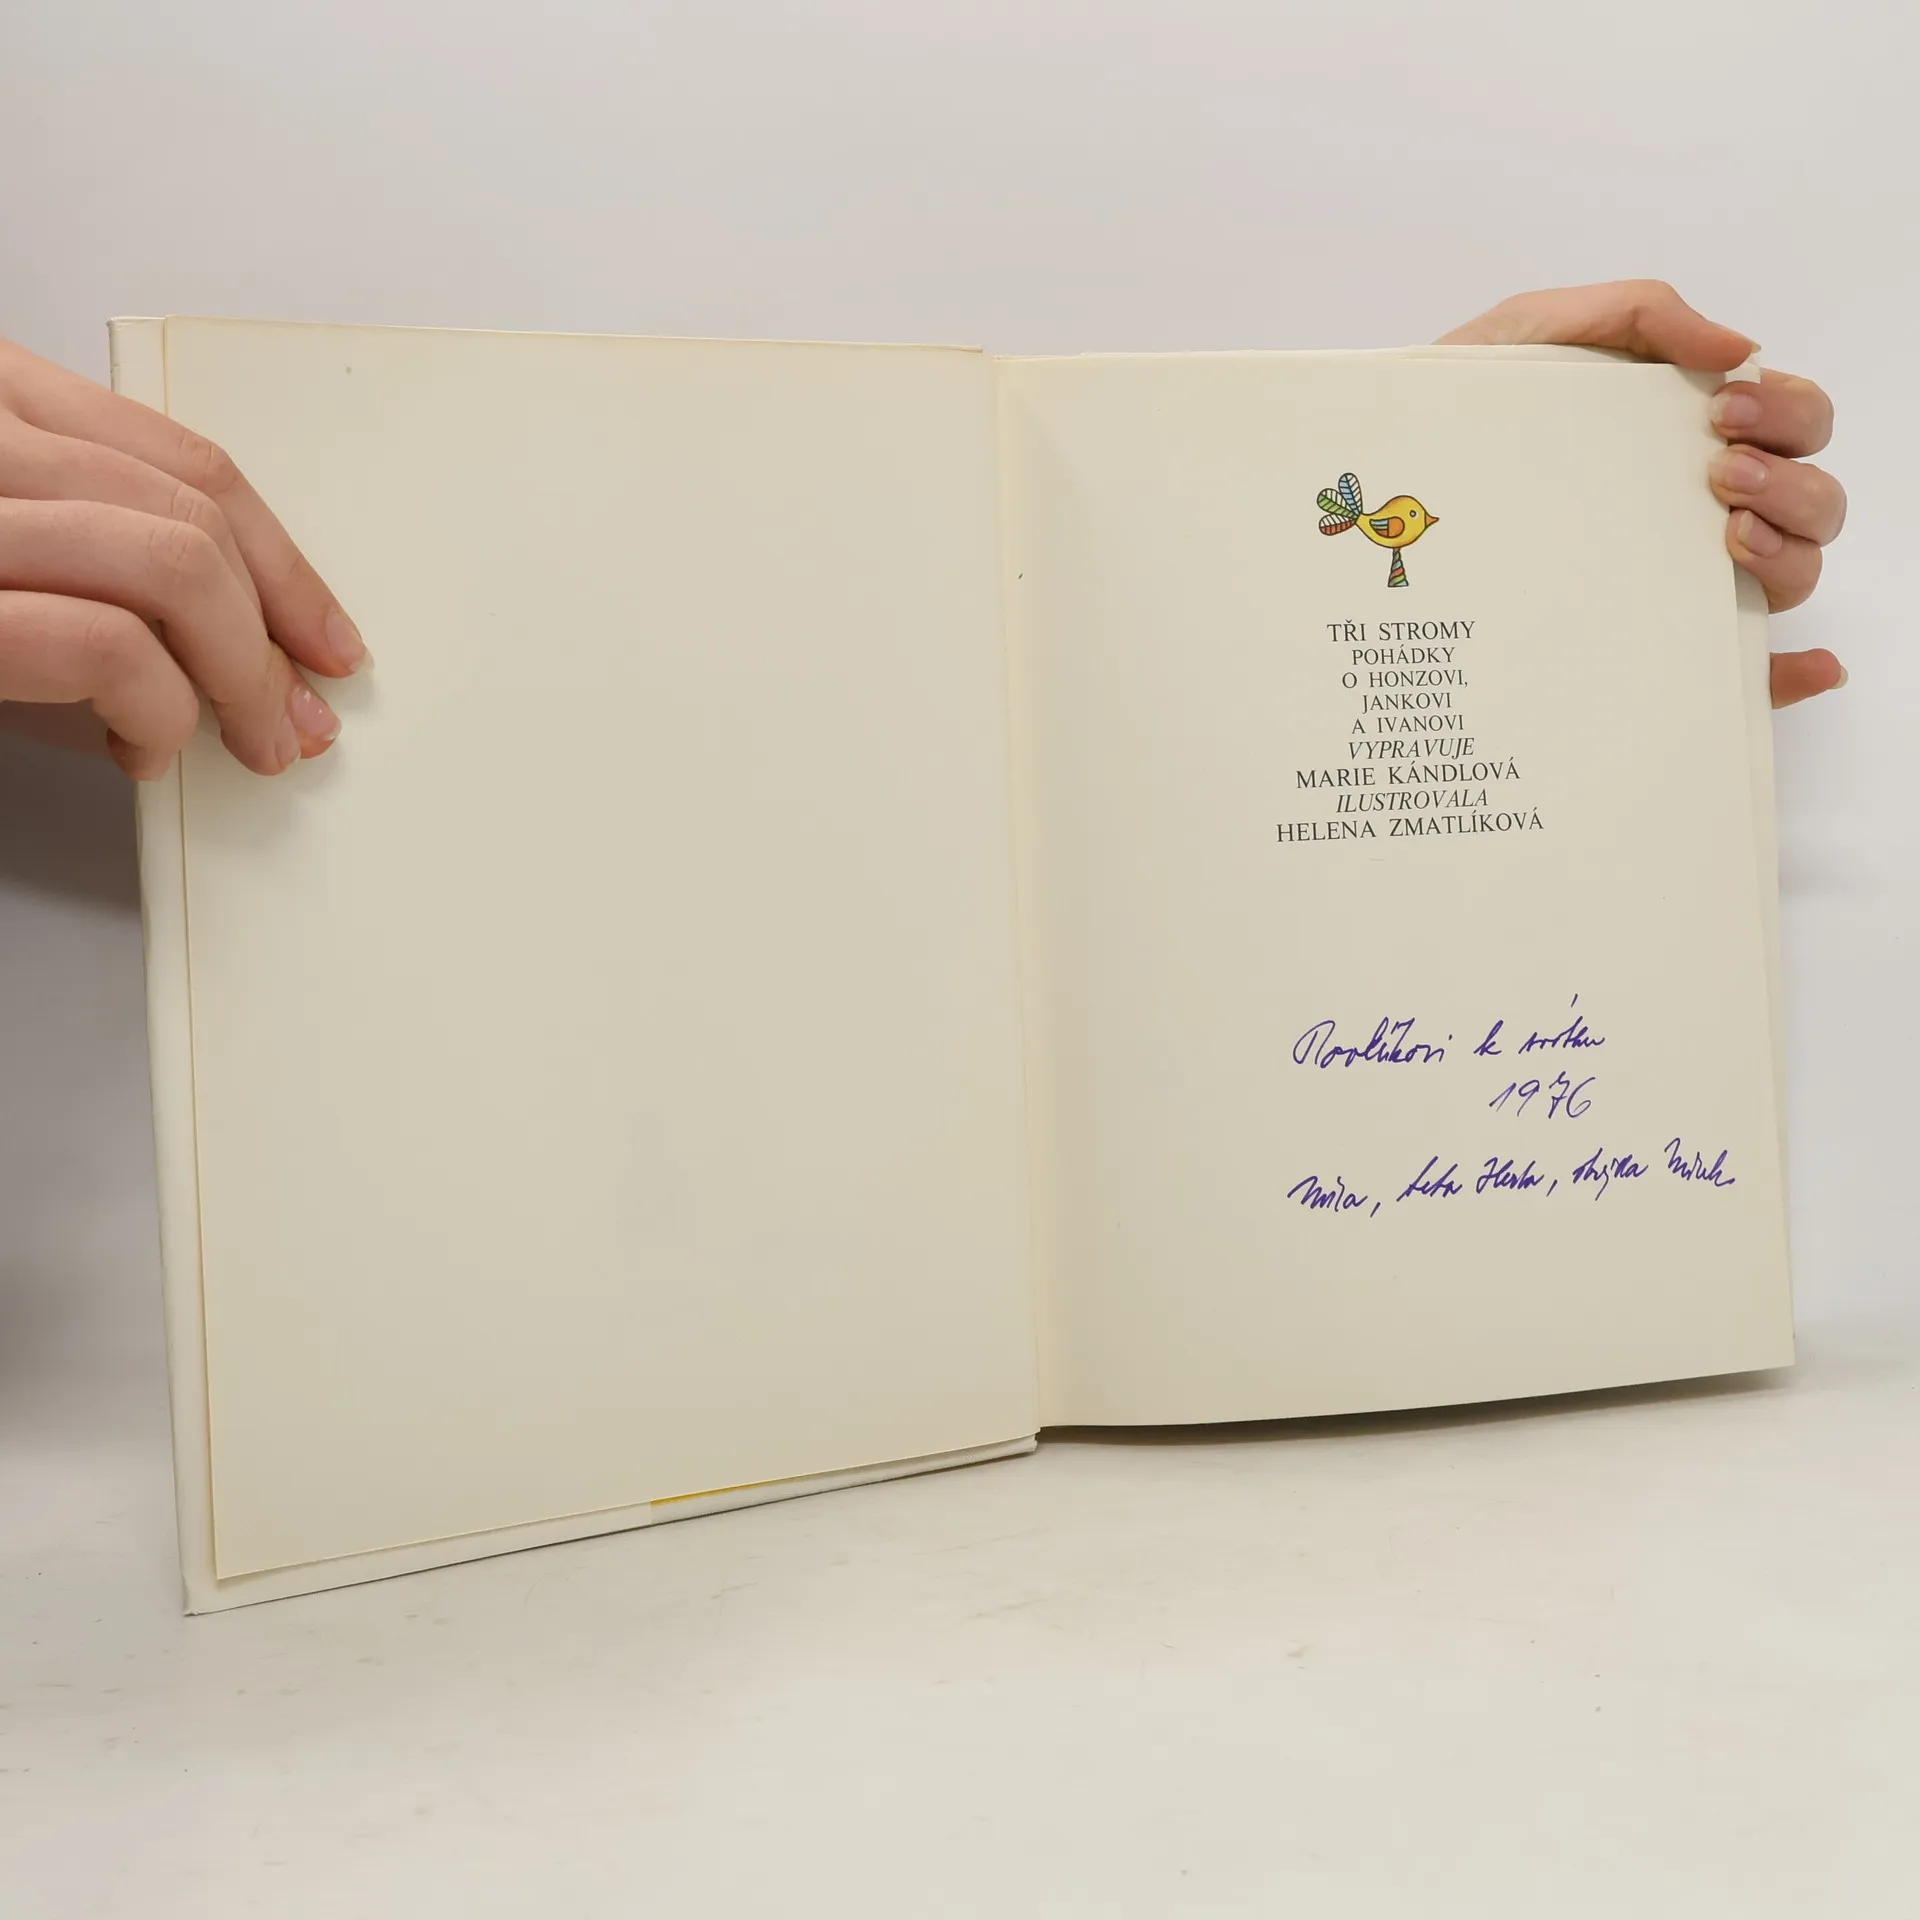 TŘI STROMY
POHÁDKY
O HONZOVI,
JANKOVI
A IVANOVI
VYPRAVUJE
MARIE KÁNDLOVÁ
ILUSTROVALA
HELENA ZMATLÍKOVÁ
Pavlíkovi k svátku
1976
Míla, teta Herta, strýda Mirek